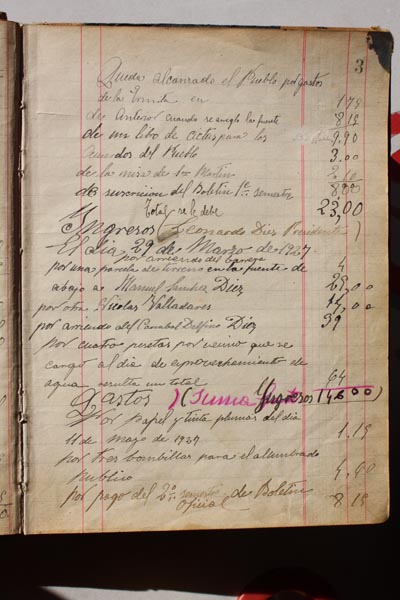 3
Queda alcanzado el Pueblo por gastos
de la en 1 75
de Antero cuando se arreglo la fuente 8,12
de un libo de actas para los 9,90
acuerdos del Pueblo 3.00
de la misa de Sn Martin
de suscricion del Boletin 1er semestre 8,00
Total se le debe 23,00
Ingresos (Leonardo Diez Presidente)
El dia 29 de Marzo de 1937
por arriendo del 4
por una parcela de terreno en la fuente de
abajo a Manuel Sanchez Diez ,00
por otra Nicolas Valladares ,00
por arriendo del Cañabal Delfino Diez 39
por cuatro pesetas por vecino que se
cargó al dia de aprovechamiento de
agua resulta un total 64
Gastos )(Suma Yngresos 146 00)
Por papel y tinta plumas del dia
11 de mayo de 1937 1.15
por tres bombillas para el alumbrado
publico 4,90
por pago del 2º semestre de Boletin
oficial 8 15